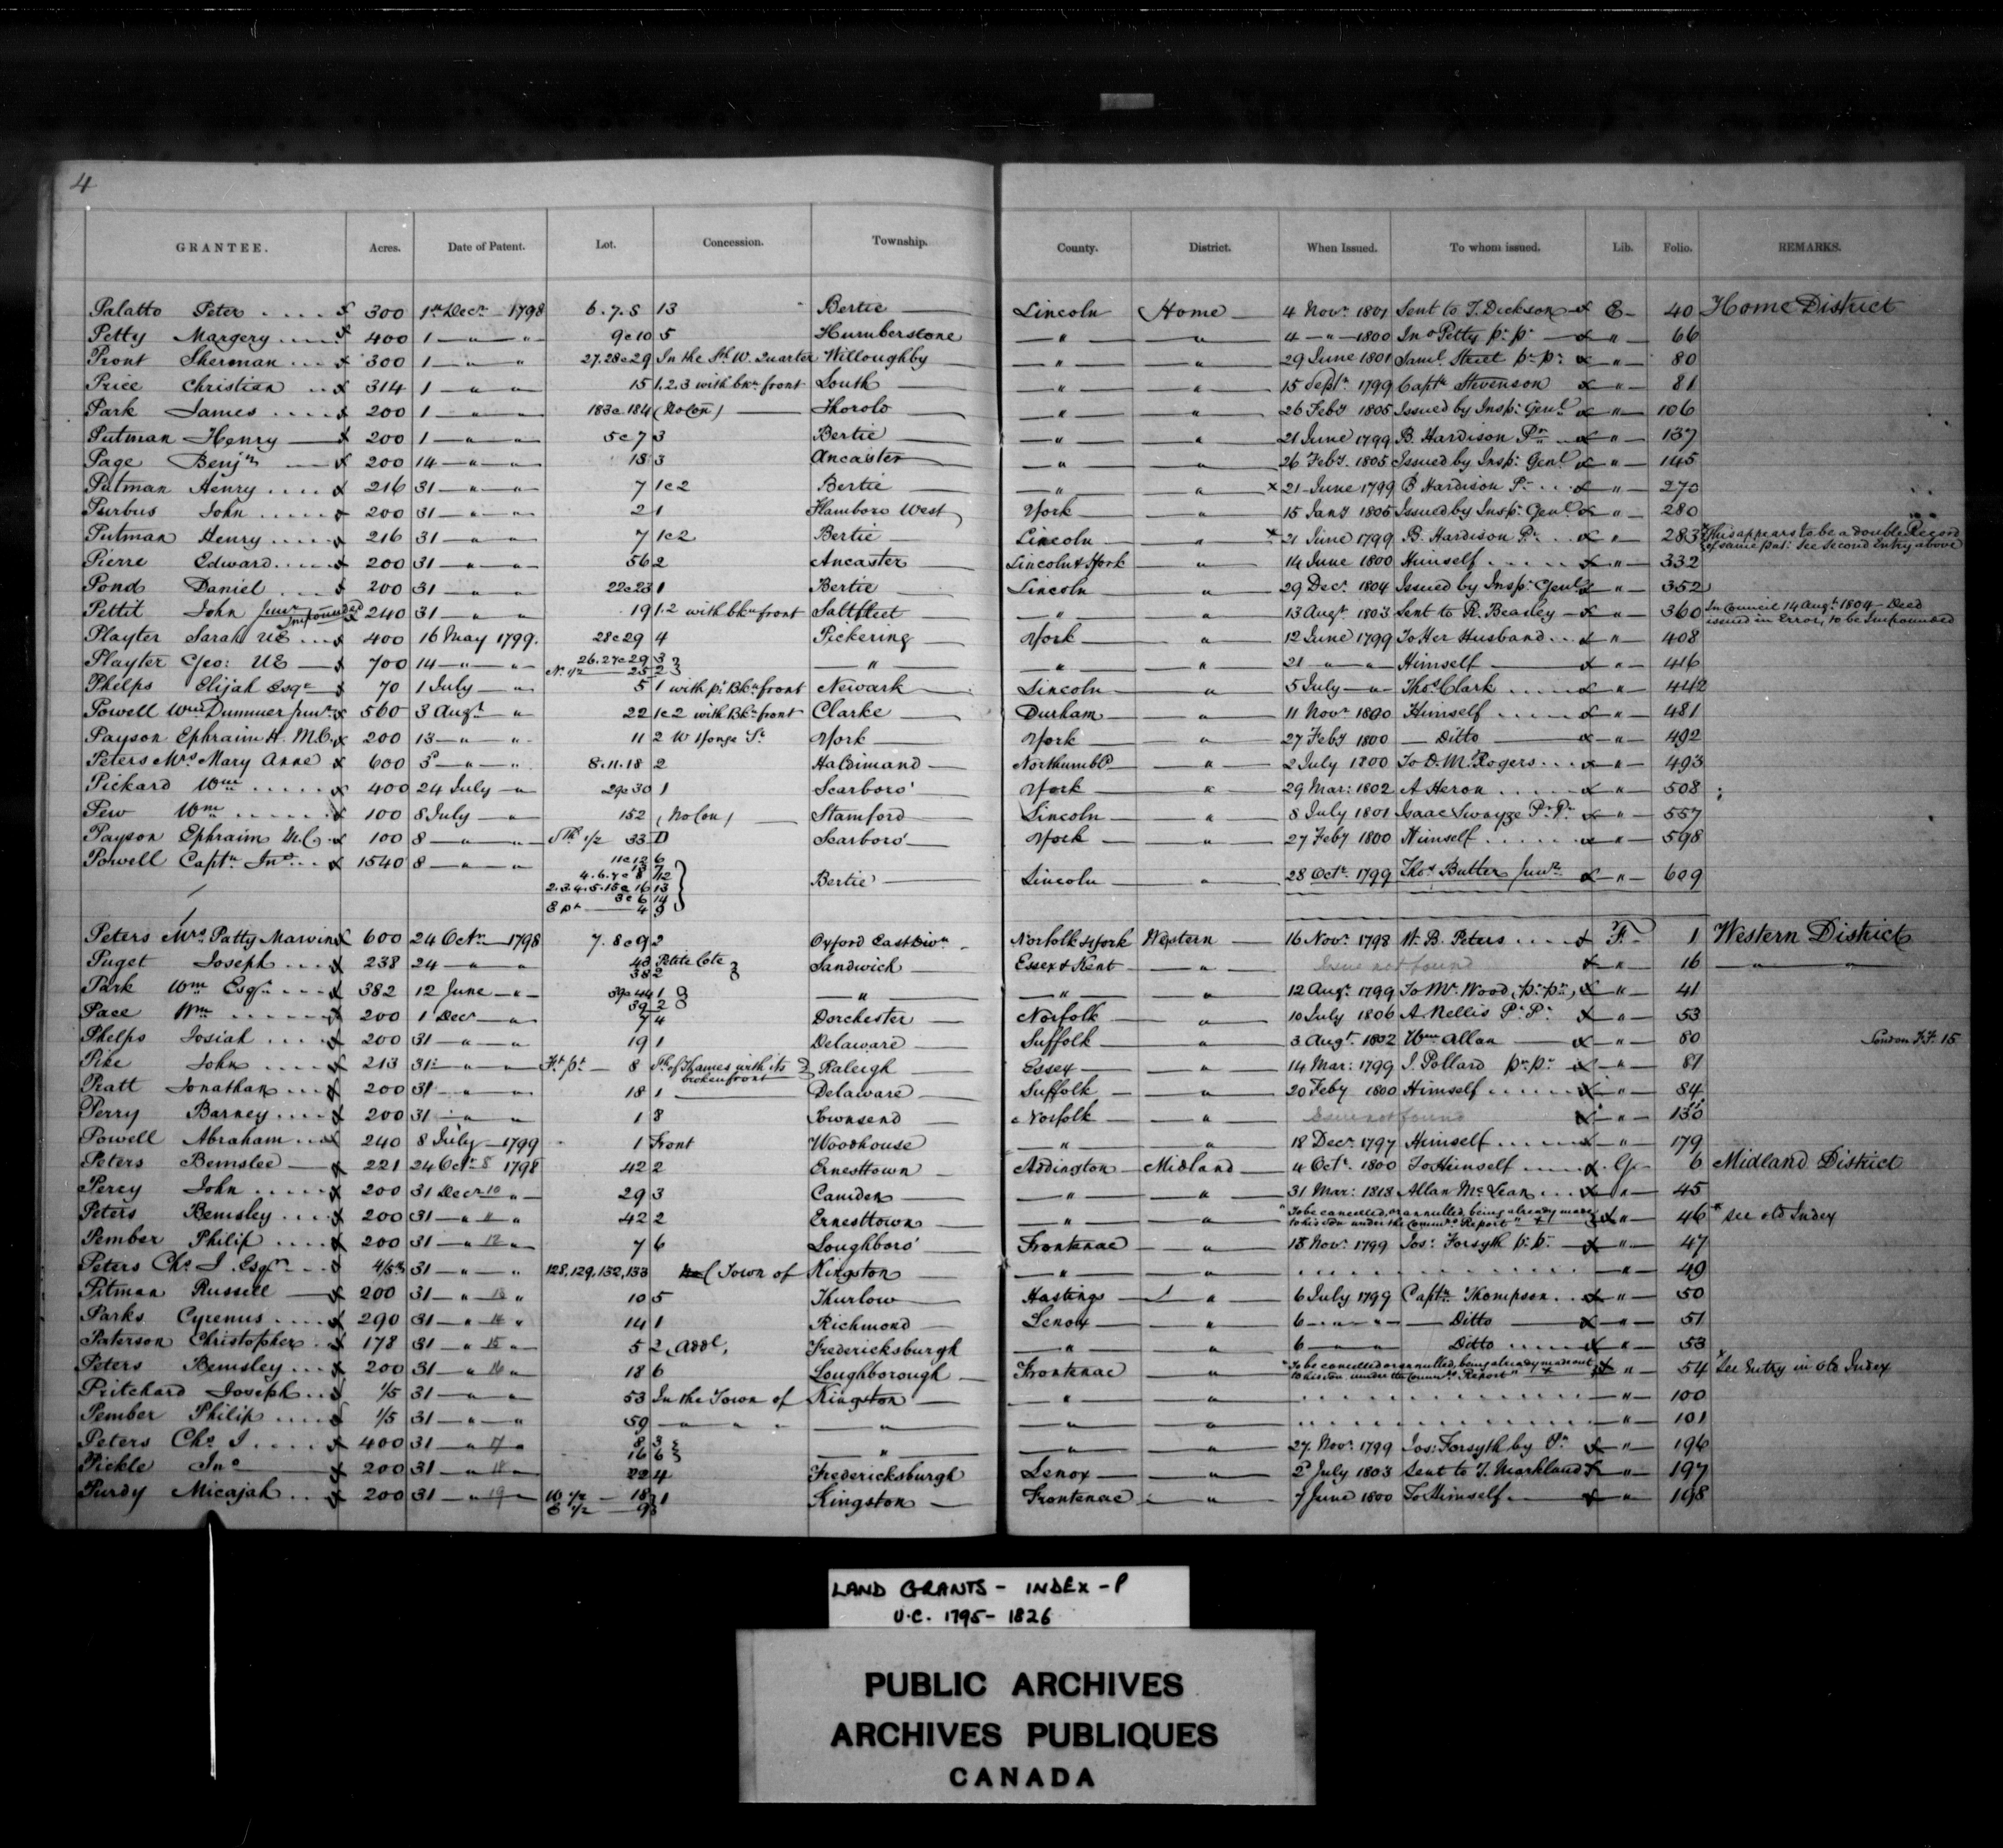 4
GRANTEE. Acres. Date of Patent. Lot. Concession. Township. County. District. When Issued. To whom issued. Lib. Folio. REMARKS.
Palatto Peter 300 1st Decr 1798 6.7.8 13 Bertie Lincoln Home 4 Novr 1801 Sent to T. Dickson E 40 Home District
Petty Margery 400 1 " " 9 & 10 5 Humberstone " " 4 " 1800 Jno Petty pr pr " 66
Pront Sherman 300 1 " " 27.28 & 29 In the Sth W. Quarter Willoughby " " 29 June 1801 Saml Street pr pr " 80
Price Christian 314 1 " " 15 1.2.3 with bkn front Louth " " 15 Septr 1799 Captn Stevenson " 81
Park James 200 1 " " 183 & 184 (No Con) Thorold " " 26 Feby 1805 Issued by Inspr Genl " 106
Putman Henry 200 1 " " 5 & 7 3 Bertie " " 21 June 1799 B. Hardison Pr " 137
Page Benjn 200 14 " " 18 3 Ancaster " " 26 Feby 1805 Issued by Inspr Genl " 145
Putman Henry 216 31 " " 7 1 & 2 Bertie " " x 21 June 1799 B Hardison Pr " 270
Purbus John 200 31 " " 2 1 Flamboro West York " 15 Jany 1805 Issued by Inspr Genl " 280
Putman Henry 216 31 " " 7 1 & 2 Bertie Lincoln " x 21 June 1799 B. Hardison Pr " 283 x This appears to be a double Record of same pat: See Second Entry above
Pierre Edward 200 31 " " 56 2 Ancaster Lincoln & York " 14 June 1800 Himself " 332
Pond Daniel 200 31 " " 22 & 23 1 Bertie Lincoln " 29 Decr 1804 Issued by Inspr Genl " 352
Pettit John Junr Impounded 240 31 " " 19 1.2 with bkn front Saltfleet " " 13 Augt 1803 Sent to R. Beasley " 360 In Council 14 Augt 1804 Deed issued in Error, to be Impounded
Playter Sarah UE 400 16 May 1799. 28 & 29 4 Pickering York " 12 June 1799 To Her Husband " 408
Playter Geo: UE 700 14 " " 26.27 & 29 3 " " " 21 " " Himself " 416
N. 1/2 25 2
Phelps Elijah Esqr 70 1 July " 5 1 with pt Bkn front Newark Lincoln " 5 July " Thos Clark " 442
Powell Wm Dummer Junr 560 3 Augt " 22 1 & 2 with Bkn front Clarke Durham " 11 Novr 1800 Himself " 481
Payson Ephraim H. M.C. 200 13 " " 11 2 W Yonge St York York " 27 Feby 1800 Ditto " 492
Peters Mrs Mary Anne 600 3 " " 8.11.18 2 Haldimand Northumbd " 2 July 1800 To D. M. Rogers " 493
Pickard Wm 400 24 July " 29 & 30 1 Scarboro' York " 29 Mar: 1802 A Heron " 508
Pew Wm 100 8 July " 152 (No Con) Stamford Lincoln " 8 July 1801 Isaac Swayze Pr Pr " 557
Payson Ephraim 100 8 " " Sth 1/2 33 D Scarboro' York " 27 Feby 1800 Himself " 598
Powell Captn Jno 1540 8 " " 11 & 12 6 Bertie Lincoln " 28 Octr 1799 Thos Butler Junr " 609
4.6.7 & 8 12
2.3.4.5.15 & 16 13
3 & 6 14
E pt 4 9
Peters Mrs Patty Marvin 600 24 Octr 1798 7. 8 & 9 2 Oxford East Divn Norfolk & York Western 16 Novr 1798 W. B. Peters F 1 Western District
Puget Joseph 238 24 " " 43 Petite Cote Sandwich Essex & Kent " Issue not found " 16 " "
38 2
Park Wm Esqr 382 12 June " 39 & 44 1 " " " 12 Augt 1799 To Mr Wood, pr pr " 41
39 2
Pace Wm 200 1 Decr " 7 4 Dorchester Norfolk " 10 July 1806 A Nellis Pr Pr " 53
Phelps Josiah 200 31 " " 19 1 Delaware Suffolk " 3 Augt 1802 Wm Allan " 80 London FF 15
Pike John 213 31 " " Ft pt 8 Sth of Thames with its broken front Raleigh Essex " 14 Mar: 1799 J. Pollard pr pr " 81
Pratt Jonathan 200 31 " " 18 1 Delaware Suffolk " 20 Feby 1800 Himself " 84
Perry Barney 200 31 " " 1 8 Townsend Norfolk " Issue not found " 130
Powell Abraham 240 8 July 1799 1 Front Woodhouse " " 18 Decr 1797 Himself " 179
Peters Bemslee 221 24 Octr 8 1798 42 2 Ernesttown Addington Midland 4 Octr 1800 To Himself G 6 Midland District
Percy John 200 31 Decr 10 " 29 3 Camden " " 31 Mar: 1818 Allan McLean " 45
Peters Bemsley 200 31 " 11 " 42 2 Ernesttown " " To be cancelled, or annulled, being already made to his son under the Commrs Report " x " 46 x See old Index
Pember Philip 200 31 " 12 " 7 6 Loughboro' Frontenac " 18 Novr 1799 Jos: Forsyth pr pr " 47
Peters Chs J. Esqr 4/5ths 31 " " 128,129,132,133 (Town of Kingston " " " 49
Pitman Russell 200 31 " 13 " 10 5 Thurlow Hastings " 6 July 1799 Captn Thompson " 50
Parks Cyrenus 290 31 " 14 " 14 1 Richmond Lenox " 6 " " Ditto " 51
Paterson Christopher 178 31 " 15 " 5 2, Addl, Fredericksburgh " " 6 " " Ditto " 53
Peters Bemsley 200 31 " 16 " 18 6 Loughborough Frontenac " To be cancelled or annulled, being already made out to his son under the Commrs Report " x " 54 x See Entry in old Index
Pritchard Joseph 1/5 31 " " 53 In the Town of Kingston " " " 100
Pember Philip 1/5 31 " " 59 " " " " " " 101
Peters Chs J. 400 31 " 17 " 8 3 " " " 27. Novr 1799 Jos: Forsyth by Pr " 196
16 6
Pickle Jno 200 31 " 18 " 22 4 Fredericksburgh Lenox " 2 July 1803 Sent to T. Markland " 197
Purdy Micajah 200 31 " 19 " W 1/2 18 1 Kingston Frontenac " 7 June 1800 To Himself " 198
E 1/2 9
LAND GRANTS - INDEX - P
U.C. 1795- 1826
PUBLIC ARCHIVES
ARCHIVES PUBLIQUES
CANADA